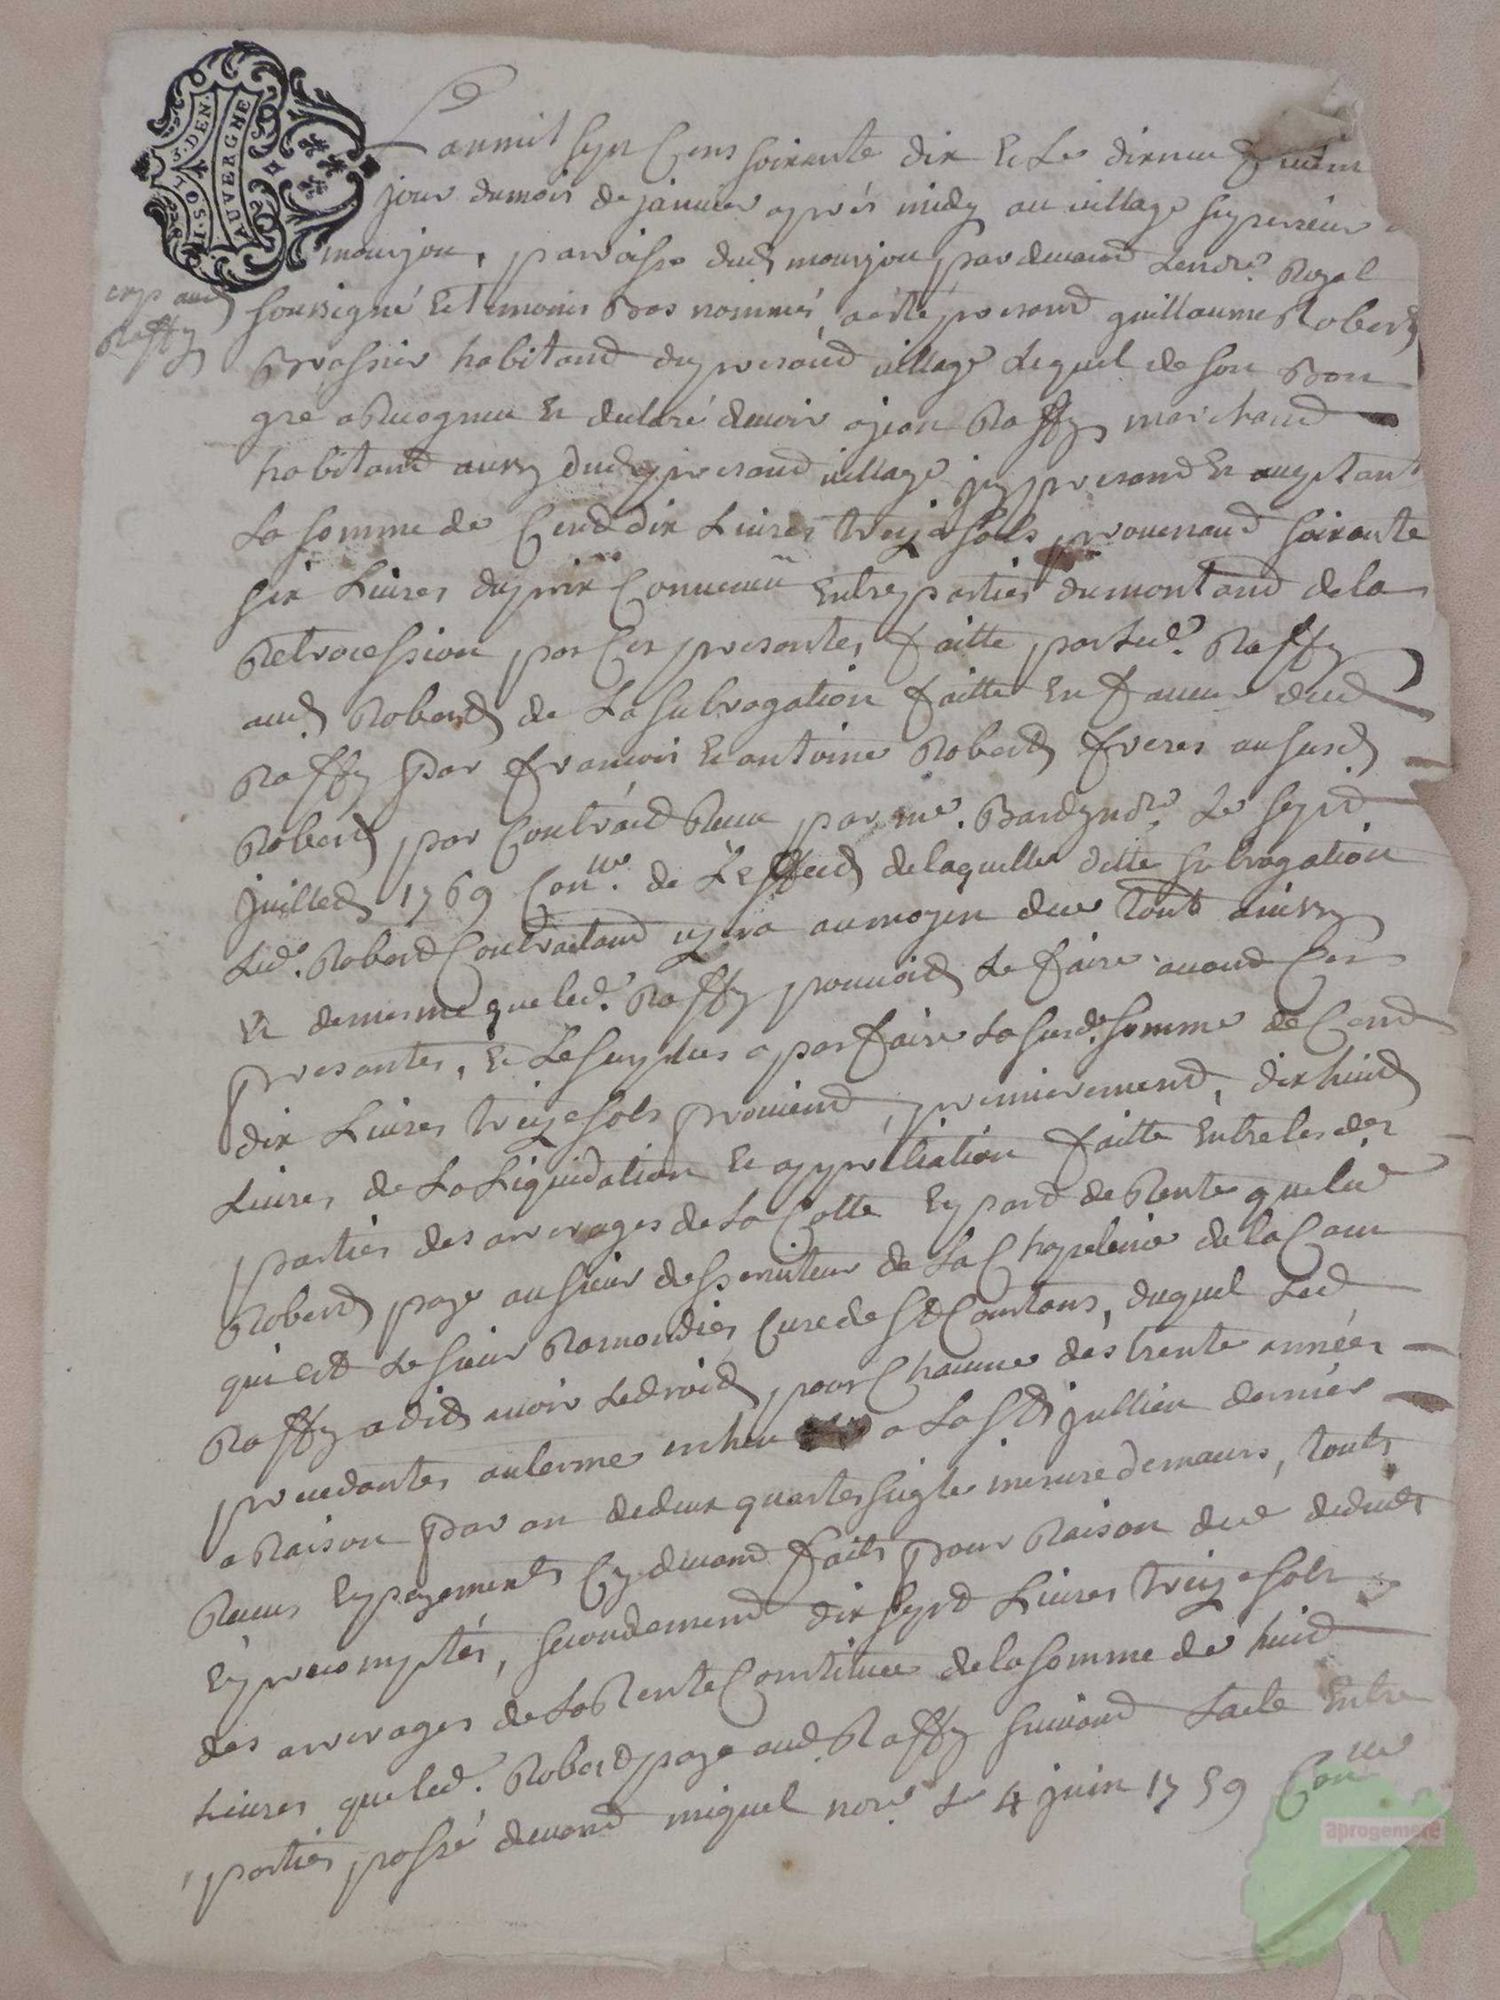 1. SOL. 4. DEN.
AUVERGNE
Lan mil sept Cens soixante dix & Le dixneufvieme
jour du mois de janvier apres midy au village superieur
mourjou, parroisse dud mourjou pardevand Le nore. Royal
exp aud soussigné Et temoins Bas nommés, a été presend guillaume Roberd
Raffy
Brassier habitand du presend village Lequel de son Bon
gré a Recognu Et declaré devoir a jean Raffy marchand
habitand aussy dud presend village jcy presend Et acceptant
La somme de Cend dix Livres treize sols, provenand soixante
six Livres du prix Convenu Entre parties du montand de la
Retrocession par Ces presentes faitte par Led. Raffy
aud Roberd de La subrogation faitte En faveur dud
Raffy par francois Et antoine Roberd freres au susd
Roberd par Contraid Reçu par me. Bard nore. Le sept
juilled 1769 Conlle. de L'Effed de laquelle ditte subrogation
Led. Roberd Contractand usera au moyen due tout ainsy
Et de mesme que led. Raffy pouvoid Le faire avand Ces
presentes, & Le surplus a parfaire La susd. somme de Cend
dix Livres treize sols proviend, premierement, dix huid
Livres de La Liquidation Et appretiation faitte Entre lesdes
parties des arrerages de La Cotte Et pard de Rente que led
Roberd paye au sieur desserviteur de La Chapelenie de la Cam
qui est Le sieur Ramondies Curé de St Constans, duquel Led
Raffy a dit avoir Le droid, pour Chacune des trente années
precedantes au terme echeu a La St jullien dernier
a Raison par an de deux quartes seigle mesure de maurs, touts
Recus Et payements Cy devand faits pour Raison due deduits
Et precomptés, secondemend dix sept Livres treize sols
des arrerages de La Rente Constituée de la somme de huid
Livres que led. Roberd paye aud Raffy suivand Lacte Entre
parties passé devand miquel nore. Le 4 juin 1759 Conlle
aprogemere